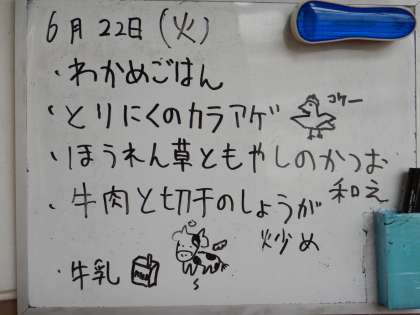 6月22日(火)
・わかめごはん
・とりにくのカラアゲ コケー
・ほうれん草ともやしのかつお
和え
・牛肉と切干のしょうが
炒め
・牛乳 MILK